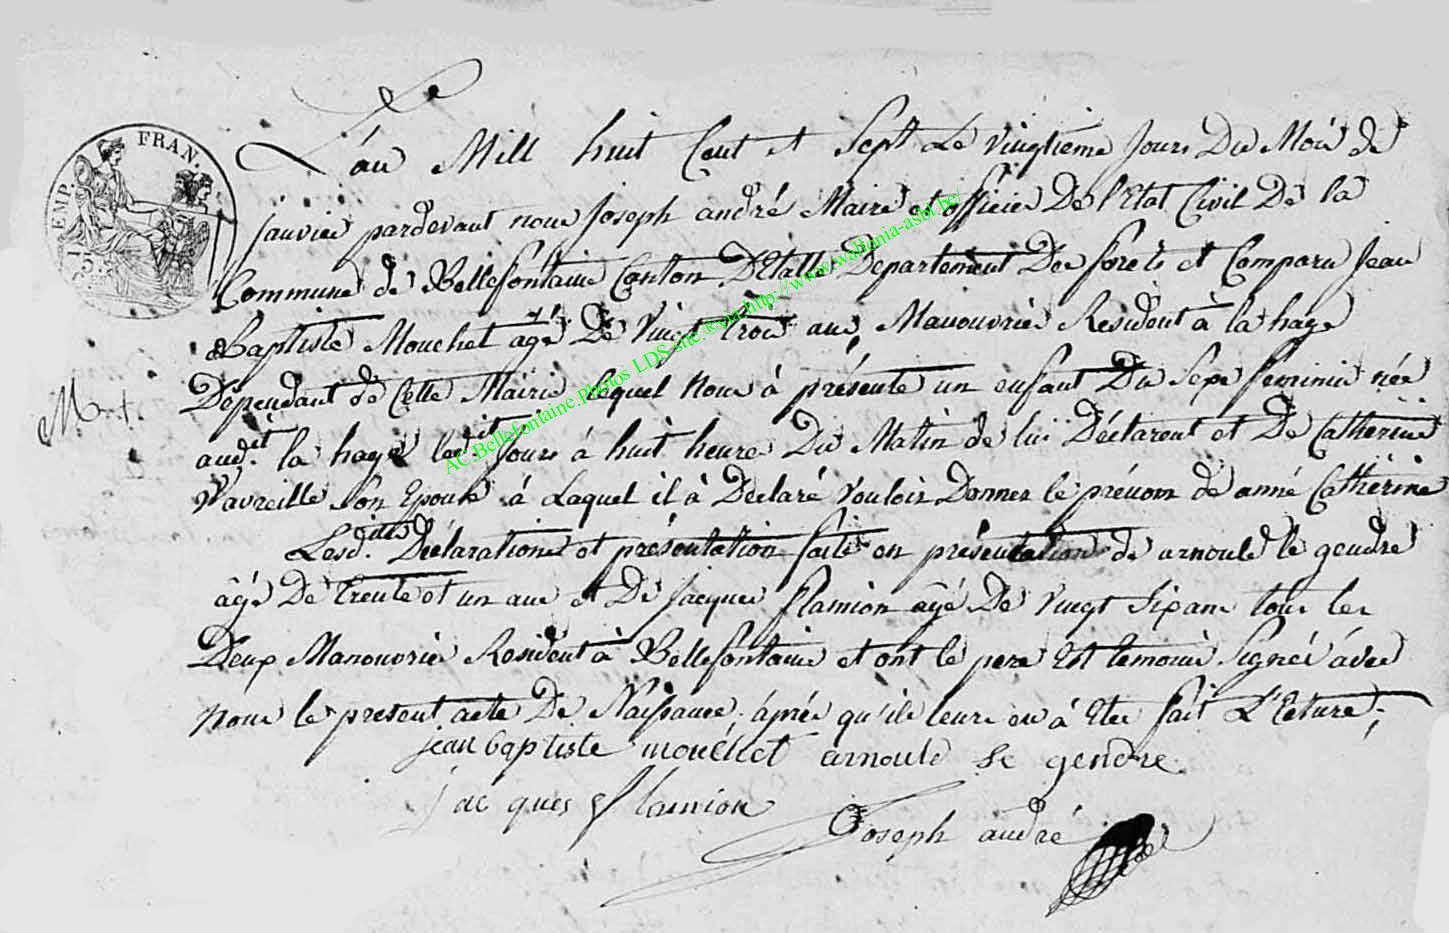 EMP. FRAN.
75
L'an Mill huit Cent et Sept Le vingtieme Jours Du Mois de
janvier pardevant nous Joseph andré Maire et officier De l'Etat Civil De la
Commune de Bellefontaine Canton D'Etalle Departement Des forets et Comparu Jean
Baptiste Mouchet agé De Vingt trois ans, Manouvrié Resident à la hage
Dépendant de Cette Mairie lequel nous à présente un enfant Du Sexe feminin née
aud.it la hage led.it Jours à huit heures Du Matin de lui Déclarent et De Catherine
Wavreille Son Epouse à Laquel il à Declaré vouloir Donner le prénom de anné Catherine
Lesd.ittes Déclarations et présentation faite en présentations de arnould le gendre
âgé De trente et un ans et De Jacques flamion agé De vingt six ans tous les
Deux Manouvrié Resident à Bellefontaine et ont le pere Est temoins Signéé avec
nous le present acte De Naissance, áprés qu'ils leurs en à Eter fait L'Ecture;
jean baptiste mouchet arnould le gendre
jacques flamion
Joseph andré
M
AC.Bellefontaine.Photos LDS-site.®via http://www.wallonia-asbl.be/